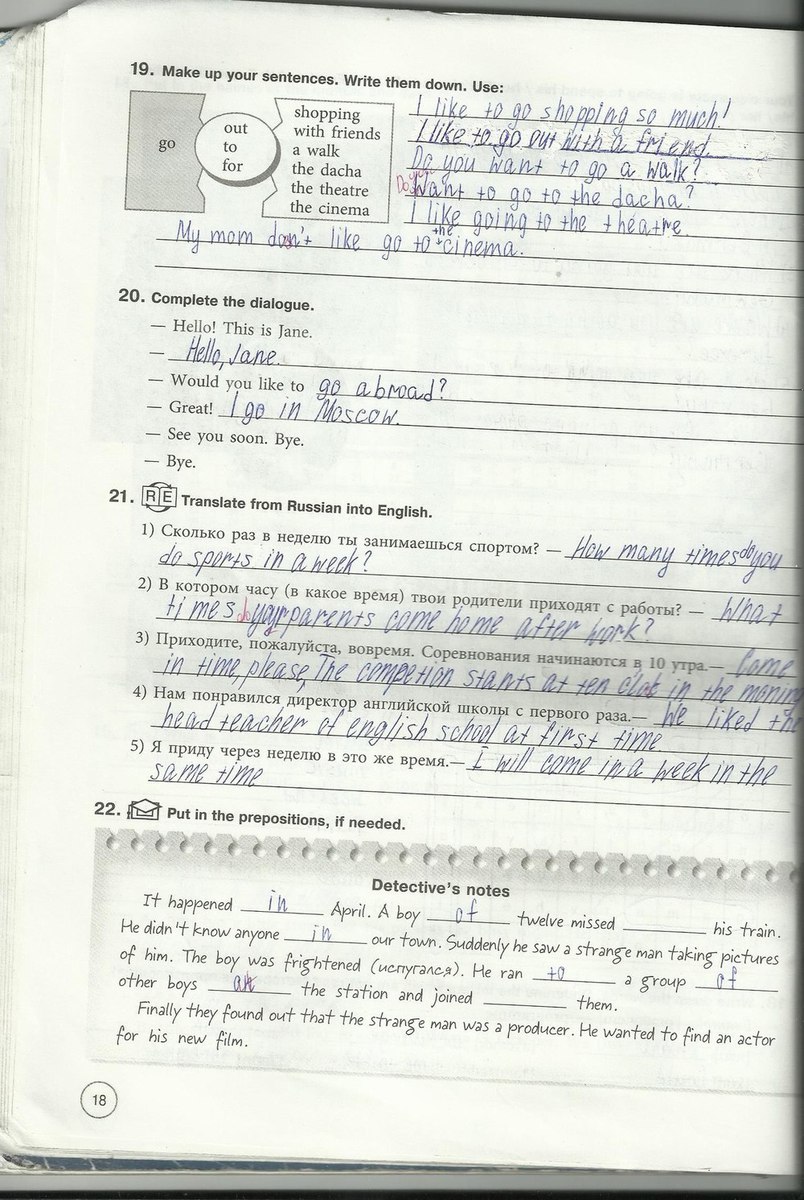 19. Make up your sentences. Write them down. Use:
go
out
to
for
shopping
with friends
a walk
the dacha
the theatre
the cinema
I like to go shopping so much!
I like to go out with a friend.
Do you want to go a walk?
Do you want to go to the dacha?
I like going to the theatre.
My mom don't like go to the cinema.
20. Complete the dialogue.
— Hello! This is Jane.
— Hello, Jane.
— Would you like to go abroad?
— Great! I go in Moscow.
— See you soon. Bye.
— Bye.
21. RE Translate from Russian into English.
1) Сколько раз в неделю ты занимаешься спортом? — How many times do you
do sports in a week?
2) В котором часу (в какое время) твои родители приходят с работы? — What
times do your parents come home after work?
3) Приходите, пожалуйста, вовремя. Соревнования начинаются в 10 утра.— Come
in time, please, The competion starts at ten clok in the moning
4) Нам понравился директор английской школы с первого раза.— We liked the
head teacher of english school at first time.
5) Я приду через неделю в это же время.— I will come in a week in the
same time
22. Put in the prepositions, if needed.
Detective's notes
It happened in April. A boy of twelve missed ____ his train.
He didn't know anyone in our town. Suddenly he saw a strange man taking pictures
of him. The boy was frightened (испугался). He ran to a group of
other boys at the station and joined ____ them.
Finally they found out that the strange man was a producer. He wanted to find an actor
for his new film.
18